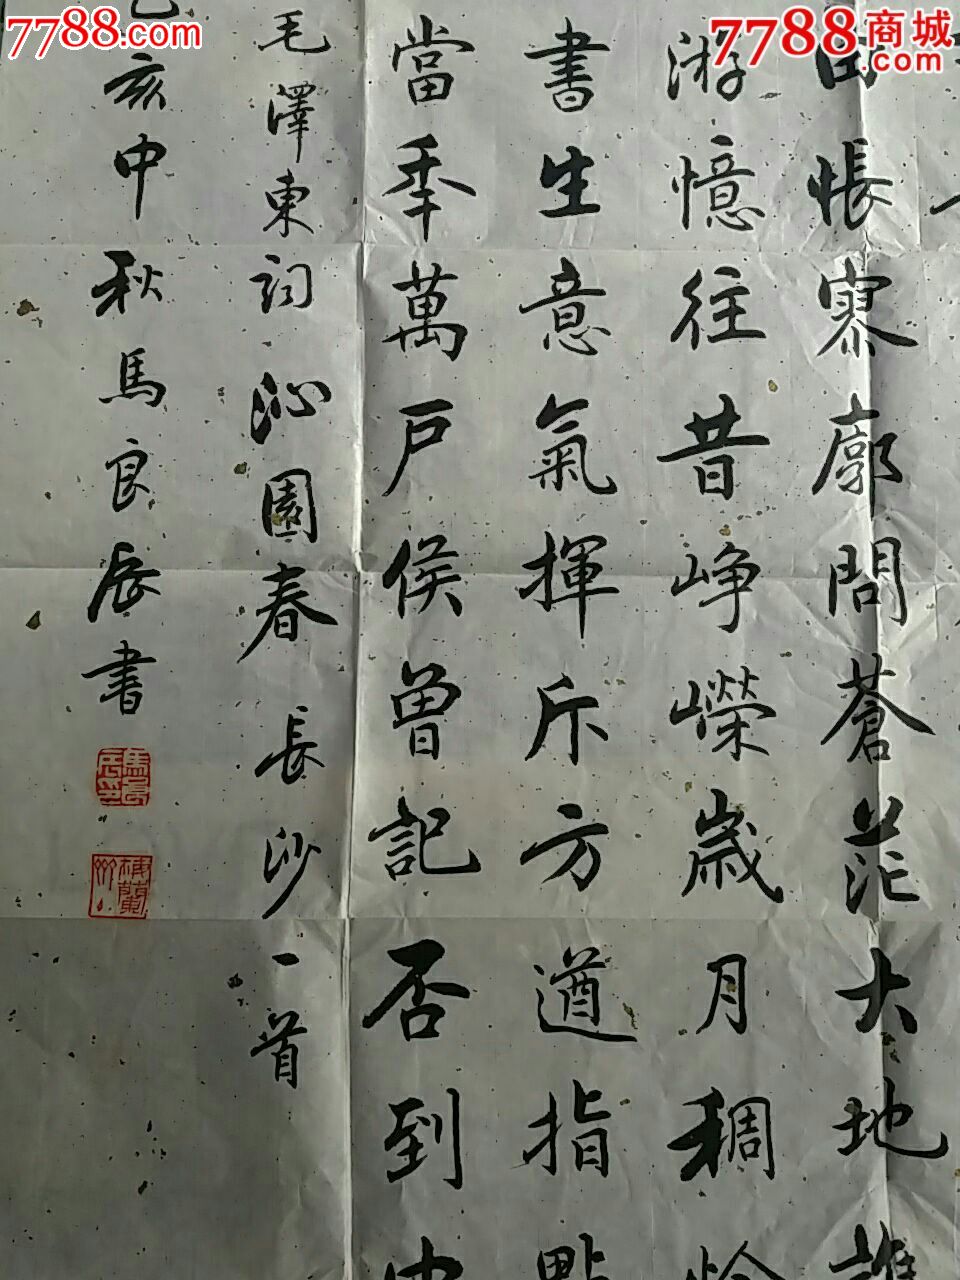 7788.com
7788商城
7788.com
由悵寥廓問蒼茫大地誰
游憶往昔崢嶸歲月稠恰
書生意氣揮斥方遒指點
當年萬戶侯曾記否到中
毛澤東詞沁園春長沙一首
亥中秋馬良辰書
馬良辰印